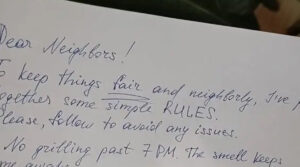 Dear Neighbors!
To keep things fair and neighborly, I've
together some simple RULES.
Please, follow to avoid any issues.
No grilling past 7 PM. The smell keeps
me